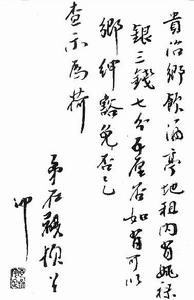 貴治鄉飲酒亭地租内有姚祿
銀三錢七分五厘否如有可以
鄉紳豁免否乞
查示為荷
弟在頓首